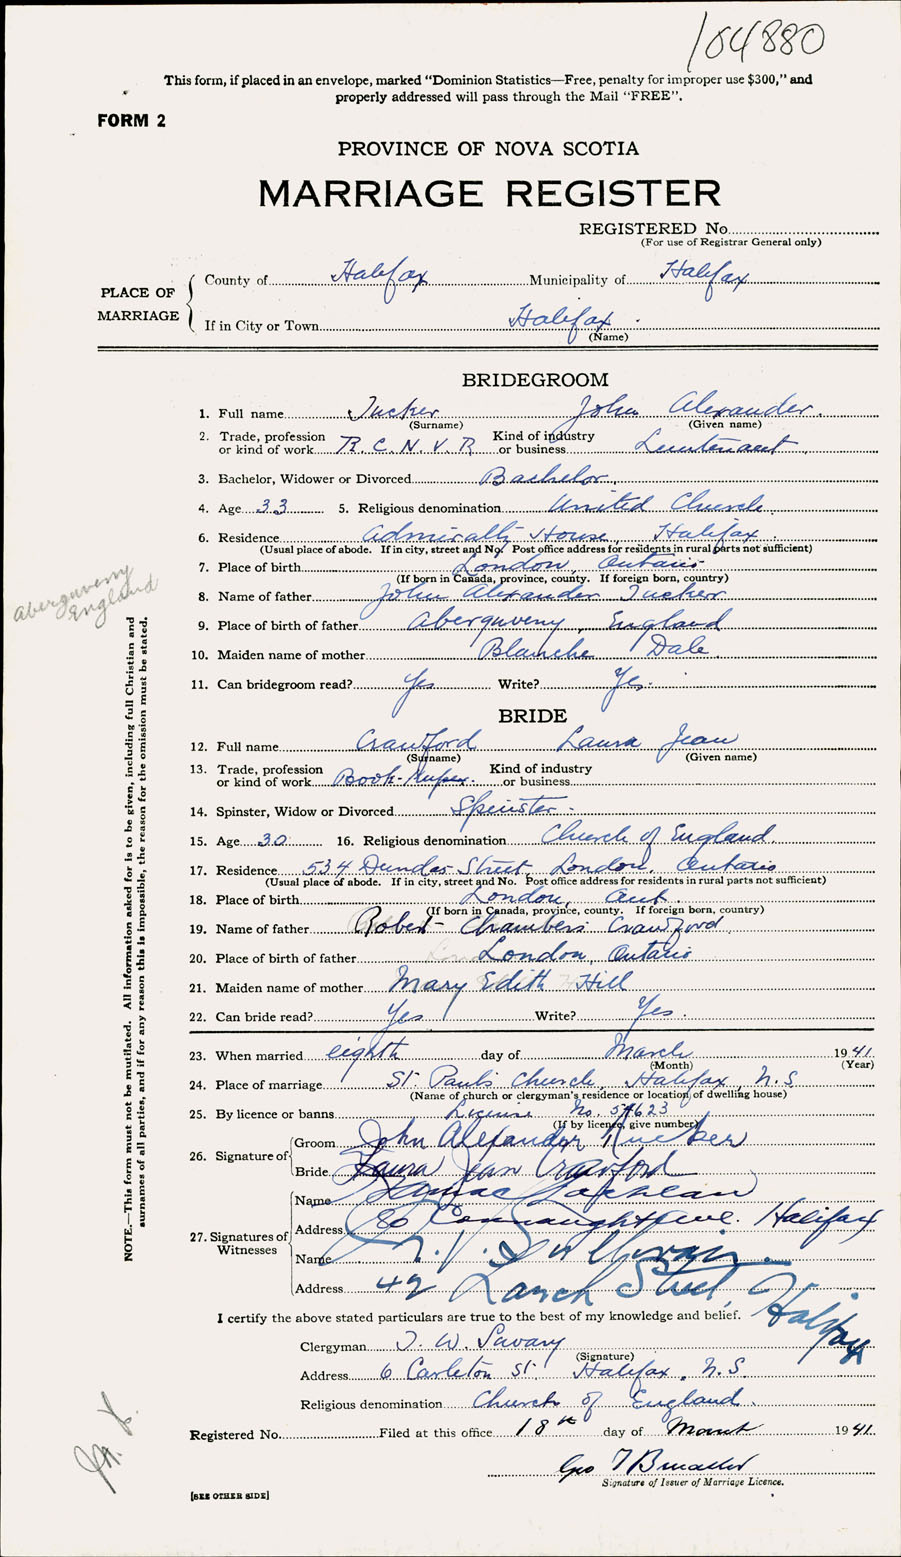 104880
This form, if placed in an envelope, marked "Dominion Statistics—Free, penalty for improper use $300," and
properly addressed will pass through the Mail "FREE".
FORM 2
PROVINCE OF NOVA SCOTIA
MARRIAGE REGISTER
REGISTERED No.
(For use of Registrar General only)
PLACE OF MARRIAGE
County of Halifax Municipality of Halifax
If in City or Town Halifax
(Name)
BRIDEGROOM
1. Full name Tucker John Alexander.
(Surname) (Given name)
2. Trade, profession or kind of work R.C.N.V.R Kind of industry or business Lieutenant
3. Bachelor, Widower or Divorced Bachelor
4. Age 33 5. Religious denomination United Church.
6. Residence Admiralty House, Halifax
(Usual place of abode. If in city, street and No. Post office address for residents in rural parts not sufficient)
7. Place of birth London, Ontario
(If born in Canada, province, county. If foreign born, country)
8. Name of father John Alexander Tucker
9. Place of birth of father Aberguveny, England
Aberguveny
England
10. Maiden name of mother Blanche Dale
11. Can bridegroom read? Yes Write? Yes.
BRIDE
12. Full name Crawford Laura Jean
(Surname) (Given name)
13. Trade, profession or kind of work Book-keeper. Kind of industry or business
14. Spinster, Widow or Divorced Spinster -
15. Age 30 16. Religious denomination Church of England.
17. Residence 534 Dundas Street, London, Ontario
(Usual place of abode. If in city, street and No. Post office address for residents in rural parts not sufficient)
18. Place of birth London, Ont.
(If born in Canada, province, county. If foreign born, country)
19. Name of father Robert Chambers Crawford
20. Place of birth of father London, Ontario
21. Maiden name of mother Mary Edith Hill
22. Can bride read? Yes Write? Yes.
23. When married eighth day of March 1941.
(Month) (Year)
24. Place of marriage St. Paul's Church, Halifax, N.S.
(Name of church or clergyman's residence or location of dwelling house)
25. By licence or banns License No. 54623
(If by licence, give number)
26. Signature of
Groom John Alexander Tucker
Bride Laura Jean Crawford
27. Signatures of Witnesses
Name
Address 80 Connaught Ave. Halifax
Name
Address 42 Street, Halifax
I certify the above stated particulars are true to the best of my knowledge and belief.
Clergyman T. W. Savary
(Signature)
Address 6 Carleton St. Halifax, N.S.
Religious denomination Church of England.
Registered No. Filed at this office 18th day of March 1941.
Geo
Signature of Issuer of Marriage Licence.
[SEE OTHER SIDE]
NOTE.—This form must not be mutilated. All information asked for is to be given, including full Christian and
surnames of all parties, and if for any reason this is impossible, the reason for the omission must be stated.